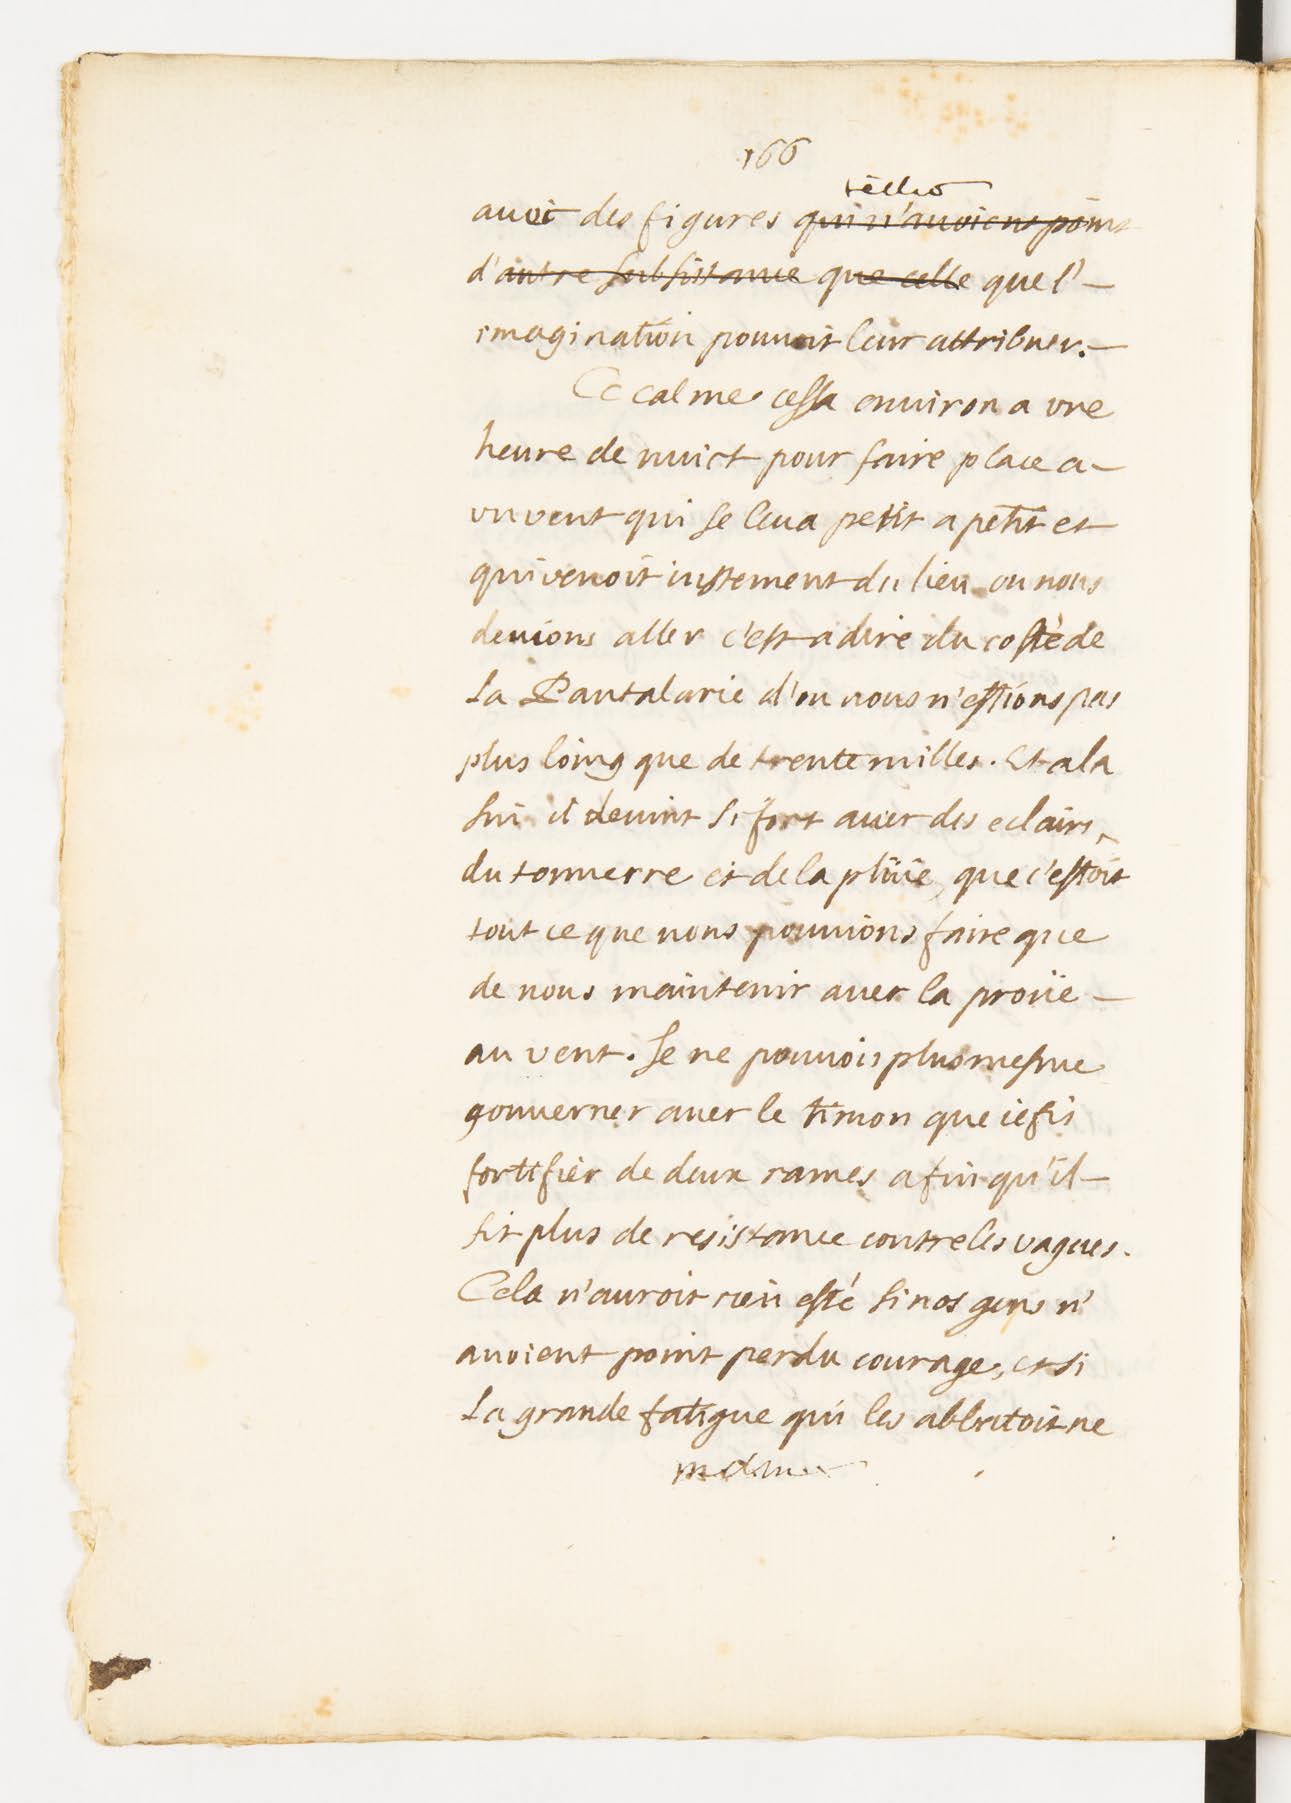 166
telles
auec des figures qui n'auoient point
d'autre subsistance que celle que l'-
imagination pouuoit leur attribuer.-
Ce calme cessa enuiron a vne
heure de nuict pour faire place a-
vn vent qui se leua petit a petit et
qui venoit iustement du lieu ou nous
deuions aller c'est a dire du costé de
la Pantalarie d'ou nous n'estions pas
plus loing que de trente milles. Et a la
fin il deuint si fort auec des eclairs,
du tonnerre et de la plüie, que c'estoit
tout ce que nous pouuions faire que
de nous maintenir auec la proüe-
au vent. Je ne pouuois plus mesme
gouuerner auec le timon que ie fis
fortifier de deux rames afin qu'il-
fit plus de resistance contre les vagues.
Cela n'auroit rien esté si nos gens n'
auoient point perdu courage, et si
la grande fatigue qui les abbatoit ne